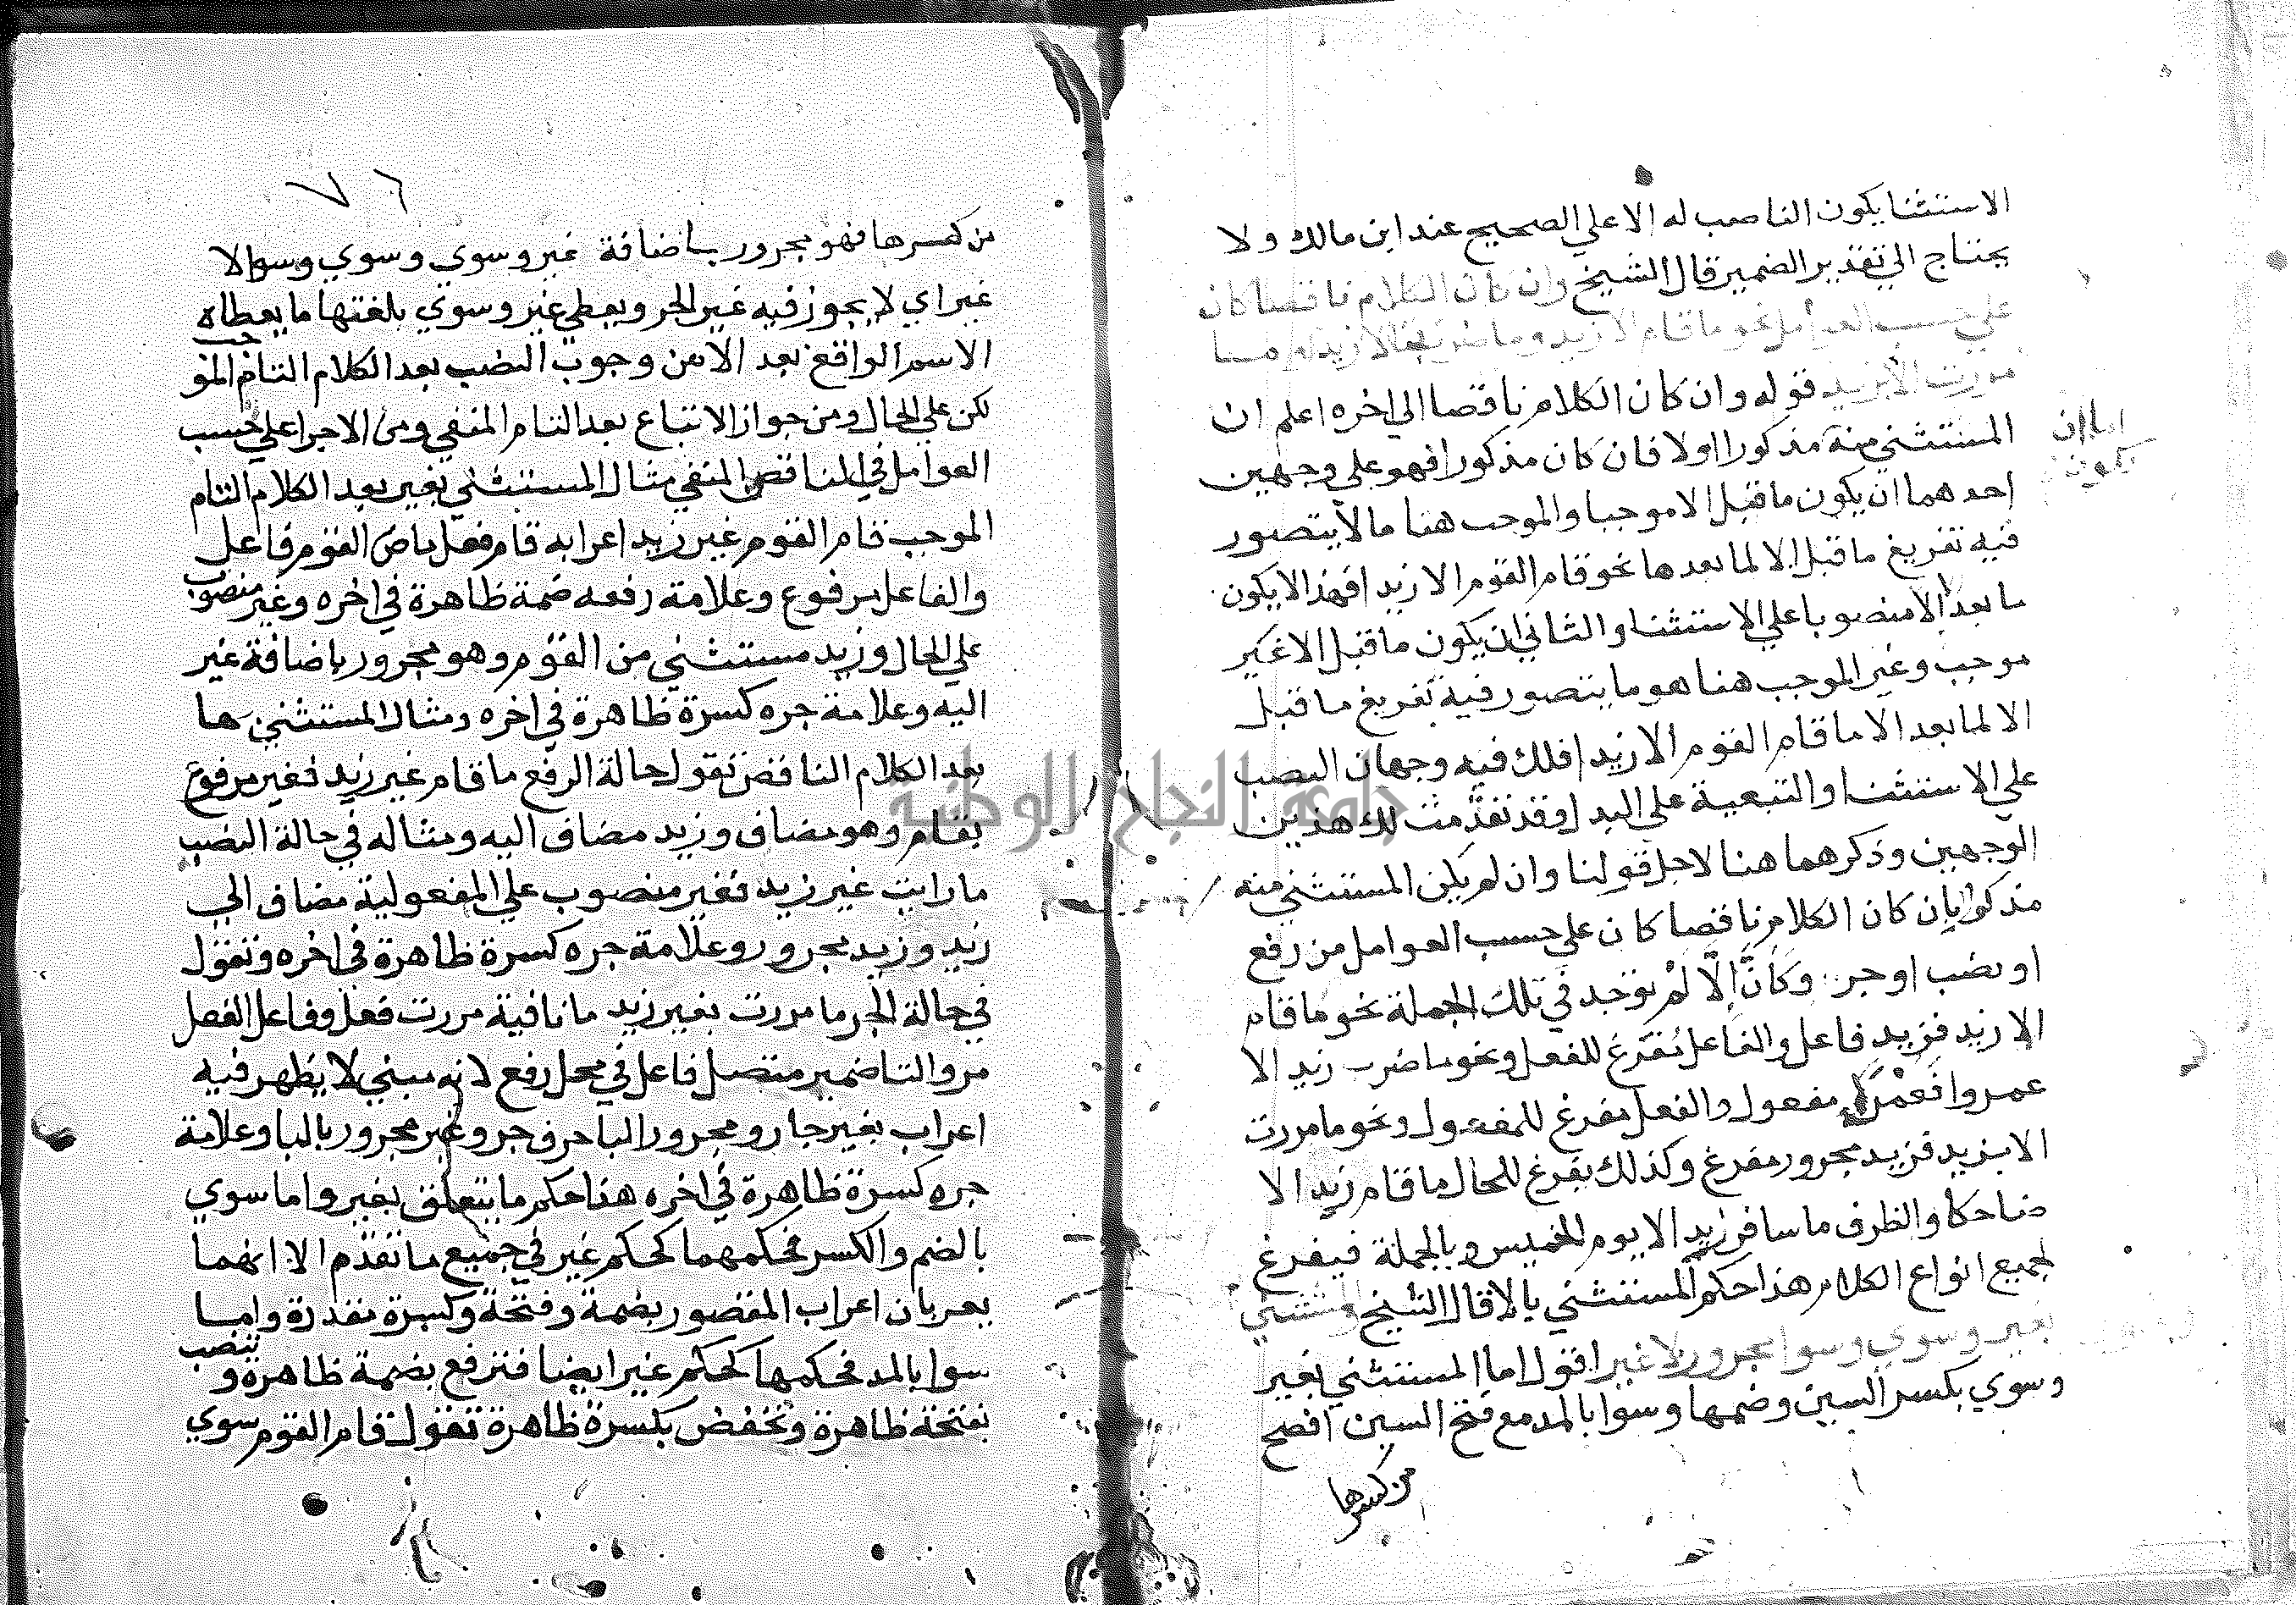 الاستثنا يكون الناصب له الا علي الصحيح عند ابن مالك ولا
يحتاج الي تقدير الضمير قال الشيخ وان كان الكلام ناقصا كان
علي حسب العوامل نحو ما قام الا زيد وما ضربت الا زيدا وما
مررت الا بزيد قوله وان كان الكلام ناقصا الي اخره اعلم ان
المستثني منه مذكورا اولا فان كان مذكورا فهو علي وجهين
اما ان
يكون
احدهما ان يكون ما قبل الا موجبا والموجب هنا ما لا يتصور
فيه تفريغ ما قبل الا لما بعدها نحو قام القوم الا زيدا فهذا لا يكون
ما بعد الا منصوبا علي الاستثنا والثاني ان يكون ما قبل الا غير
موجب وغير الموجب هنا هو ما يتصور فيه تفريغ ما قبل
الا لما بعد الا ما قام القوم الا زيدا فلك فيه وجهان النصب
علي الاستثنا والتبعية علي البدل وقد تقدمت لك هذين
الوجهين وذكرهما هنا لاجل قولنا وان لم يكن المستثني منه
مذكورا بان كان الكلام ناقصا كان علي حسب العوامل من رفع
او نصب او جر وكأنّ إلّا لم توجد في تلك الجملة نحو ما قام
الا زيد فزيد فاعل والفاعل مُفرّغ للفعل ونحو ما ضرب زيد الا
عمروا فعمرا مفعول والفعل مفرغ للمفعول ونحو ما مررت
الا بزيد فزيد مجرور مفرغ وكذلك يفرغ للحال ما قام زيد الا
ضاحكا والظرف ما سافر زيد الا يوم الخميس وبالجملة فيفرغ
لجميع انواع الكلام هذا حكم المستثني بالا قال الشيخ والمستثني
بغير وسوي وسوا مجرور لا غير اقول اما المستثني بغير
وسوي بكسر السين وضمها وسوا بالمد مع فتح السين افصح
من كسرها
٧٦
من كسرها فهو مجرور باضافة غير وسوي وسوي وسوا لا
غير اي لا يجوز فيه غير الجر ويعطي غير وسوي بلغتها ما يعطاه
الاسم الواقع بعد الا من وجوب النصب بعد الكلام التام الموجب
لكن علي الحال ومن جواز الاتباع بعد التام المنفي ومن الاجرا علي حسب
العوامل في الناقص المنفي مثال المستثني بغير بعد الكلام التام
الموجب قام القوم غير زيد اعرابه قام فعل ماض القوم فاعل
والفاعل مرفوع وعلامة رفعه ضمة ظاهرة في اخره وغير منصوب
علي الحال وزيد مستثني من القوم وهو مجرور باضافة غير
اليه وعلامة جره كسرة ظاهرة في اخره ومثال المستثني بها
بعد الكلام الناقص تقول حالة الرفع ما قام غير زيد فغير مرفوع
بقام وهو مضاف وزيد مضاف اليه ومثاله في حالة النصب
ما رايت غير زيد فغير منصوب علي المفعولية مضاف الي
زيد وزيد مجرور وعلامة جره كسرة ظاهرة في اخره وتقول
في حالة الجر ما مررت بغير زيد ما نافية مررت فعل وفاعل الفعل
مر والتا ضمير متصل فاعل في محل رفع لانه مبني لا يظهر فيه
اعراب بغير جار ومجرور البا حرف جر وغير مجرور بالبا وعلامة
جره كسرة ظاهرة في اخره هذا حكم ما يتعلق بغير واما سوي
بالضم والكسر فحكمهما كحكم غير في جميع ما تقدم الا انهما
يعربان اعراب المقصور بضمة وفتحة وكسرة مقدرة واما
سوا بالمد فحكمها كحكم غير ايضا فترفع بضمة ظاهرة وتنصب
بفتحة ظاهرة وتخفض بكسرة ظاهرة تقول قام القوم سوي
جامعة النجاح الوطنية